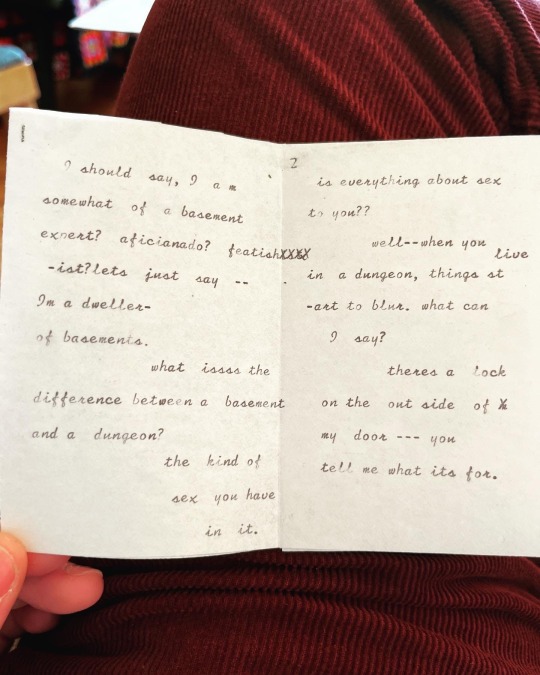 I should say, I am
somewhat of a basement
expert? aficianado? featishXXXX
-ist?lets just say --
Im a dweller-
of basements.
what issss the
difference between a basement
and a dungeon?
the kind of
sex you have
in it.
2
is everything about sex
to you??
well--when you
live
in a dungeon, things st
-art to blur. what can
I say?
theres a lock
on the out side of X
my door --- you
tell me what its for.